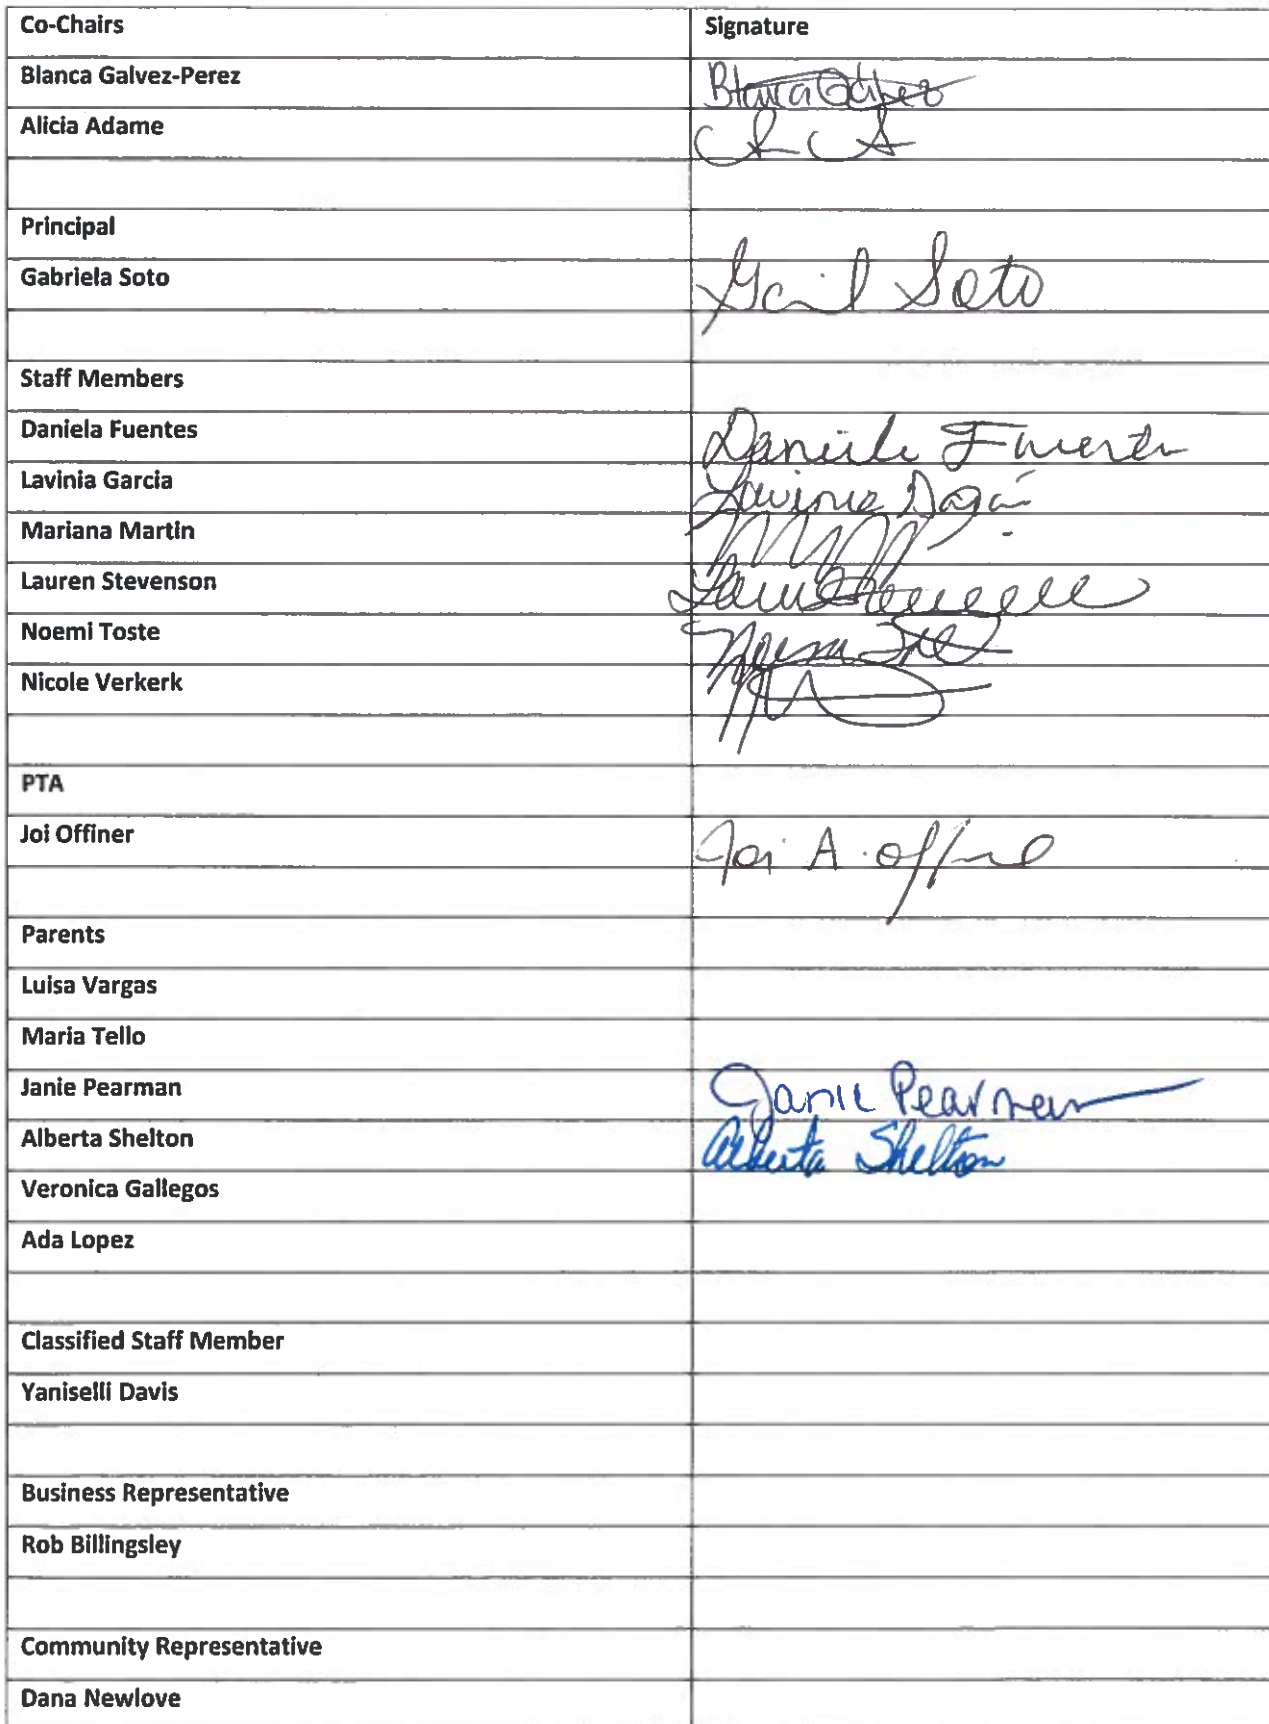 Co-Chairs Signature
Blanca Galvez-Perez Blanca Galvez
Alicia Adame
Principal
Gabriela Soto Gail Soto
Staff Members
Daniela Fuentes Daniela Fuentes
Lavinia Garcia Lavinia
Mariana Martin
Lauren Stevenson
Noemi Toste Noemi
Nicole Verkerk
PTA
Joi Offiner Joi A.
Parents
Luisa Vargas
Maria Tello
Janie Pearman Janie Pearman
Alberta Shelton Alberta Shelton
Veronica Gallegos
Ada Lopez
Classified Staff Member
Yaniselli Davis
Business Representative
Rob Billingsley
Community Representative
Dana Newlove